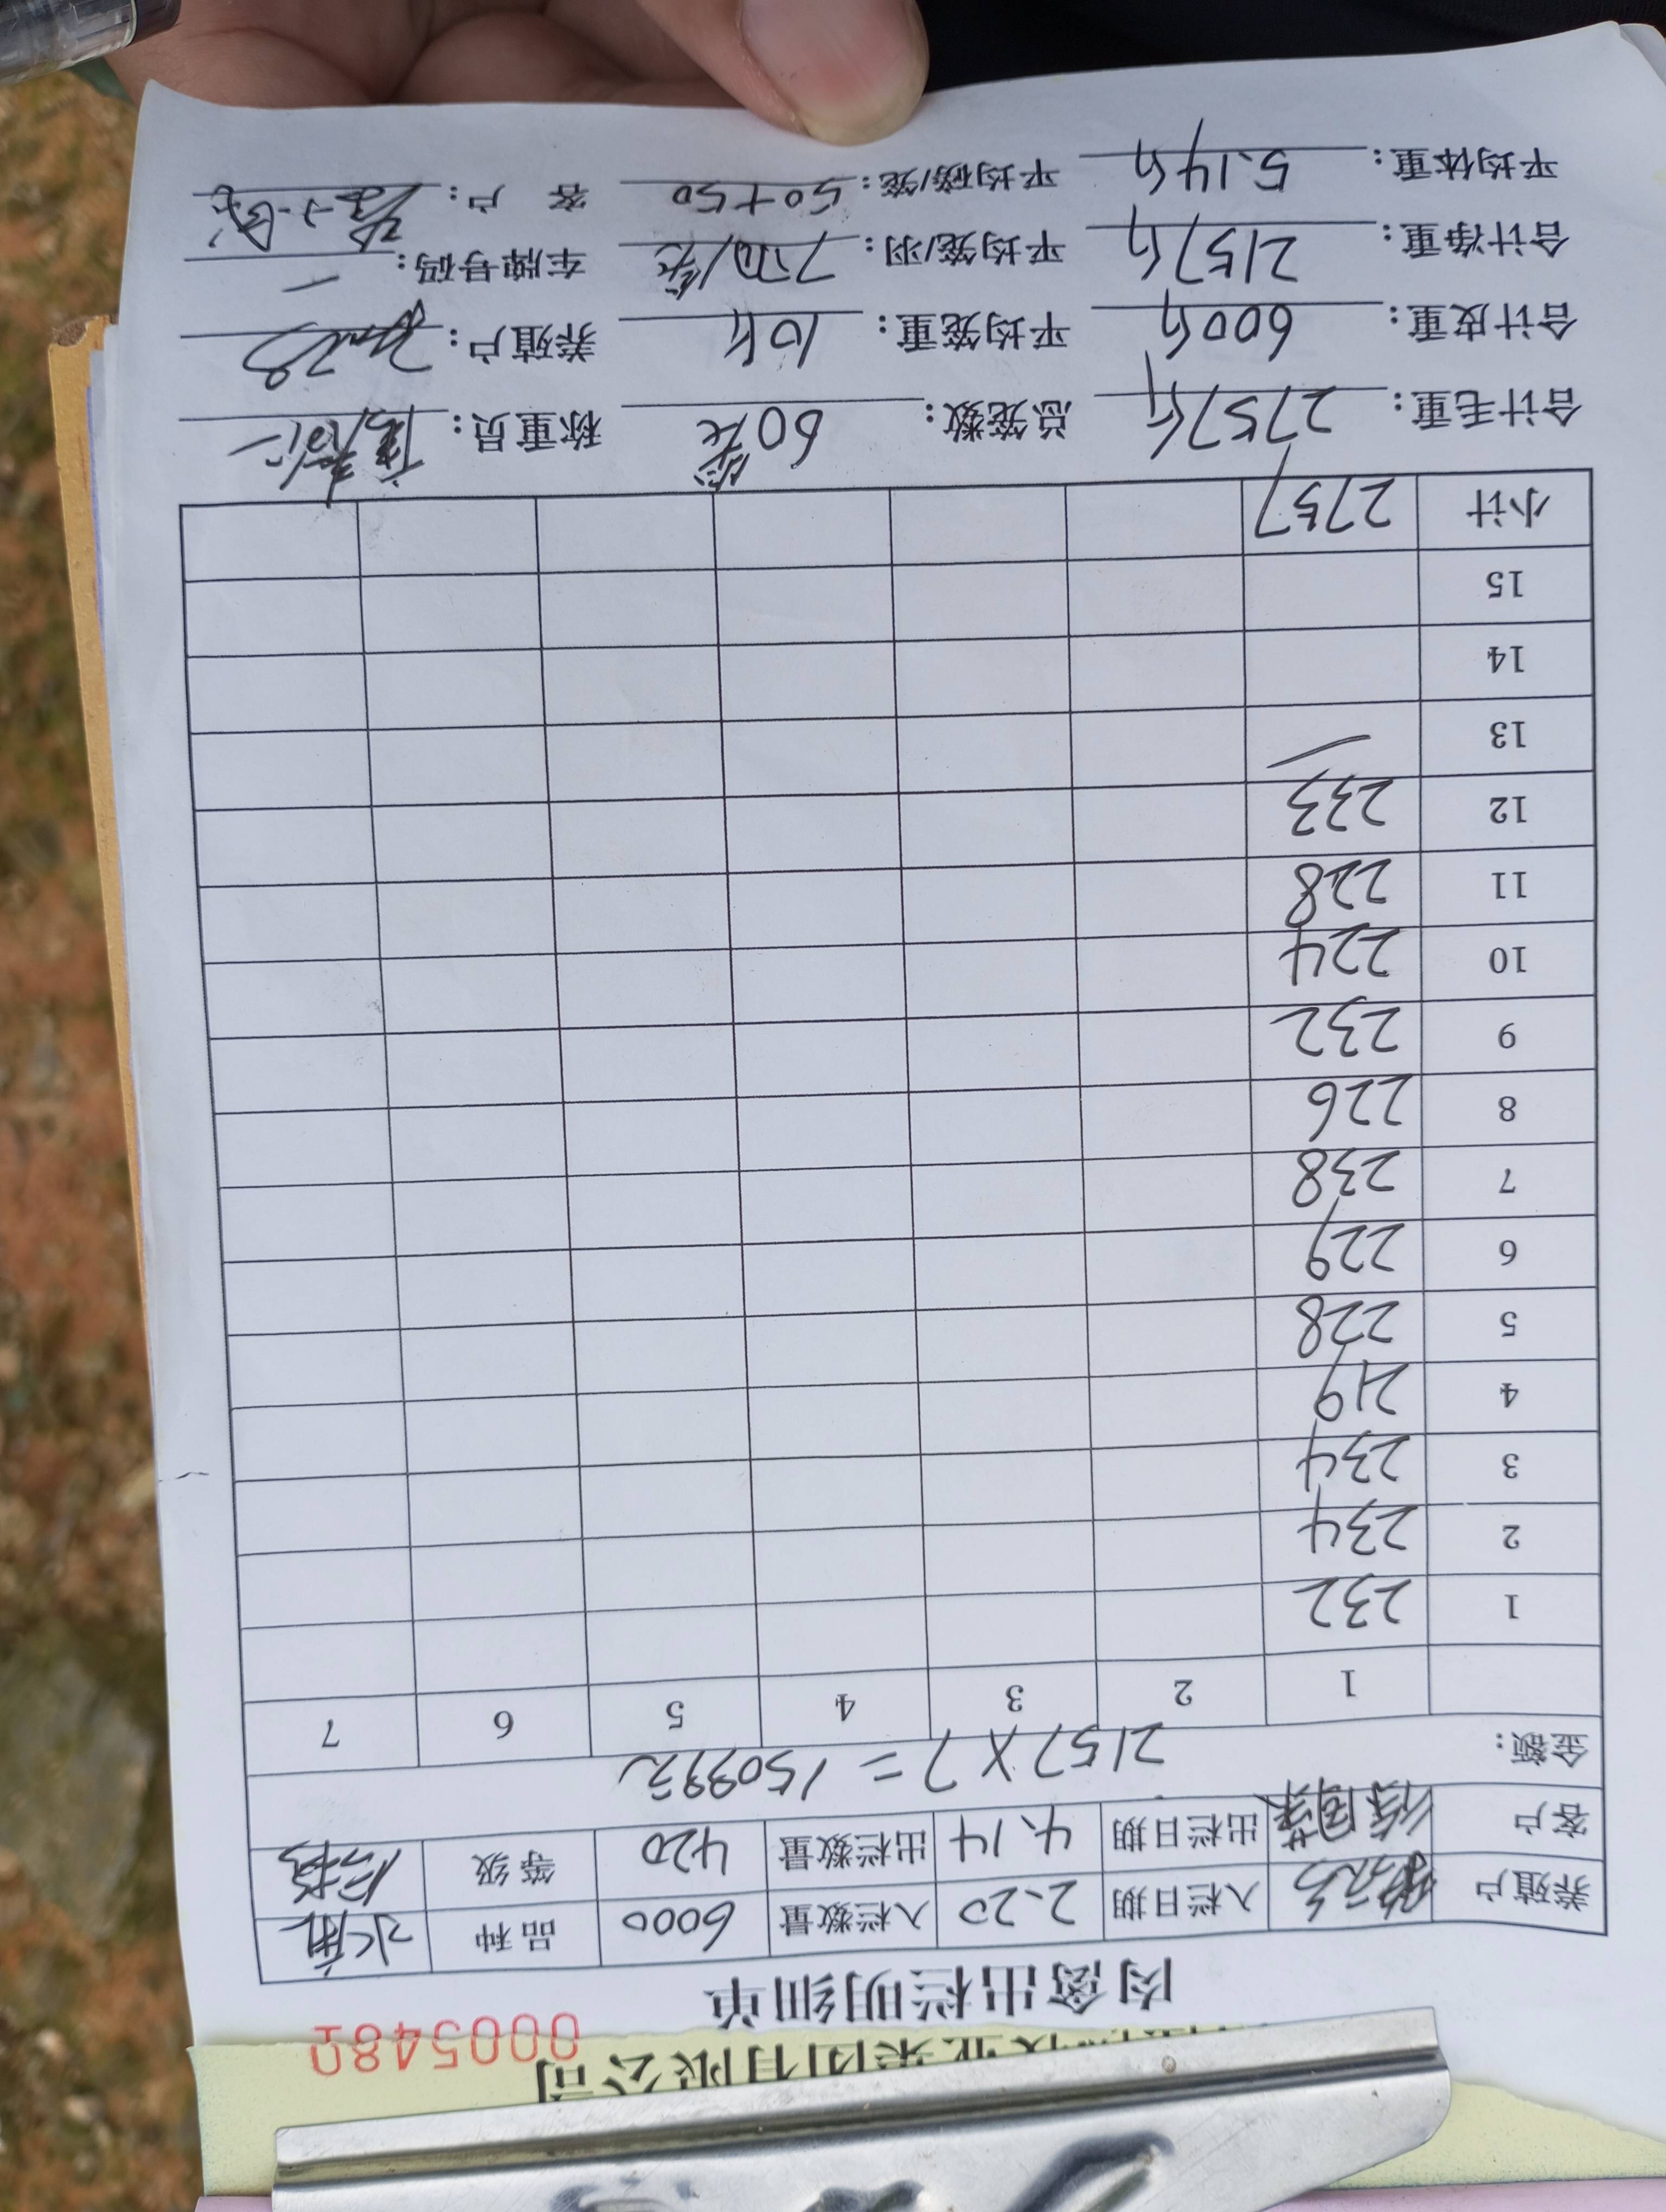 集团有限公司
0005480
肉禽出栏明细单
养殖户 入栏日期 2.20 入栏数量 6000 品种
客户 出栏日期 4.14 出栏数量 420 等级
金额: 2157×7=15099元
1 2 3 4 5 6 7
1 232
2 234
3 234
4 219
5 228
6 229
7 238
8 226
9 232
10 224
11 228
12 233
13
14
15
小计 2757
合计毛重: 2757斤 总笼数: 60笼 称重员:
合计皮重: 600斤 平均笼重: 10斤 养殖户:
合计净重: 2157斤 平均笼/羽: 7只/笼 车牌号码: 一
平均体重: 5.14斤 平均磅/笼: 50+50 客户: